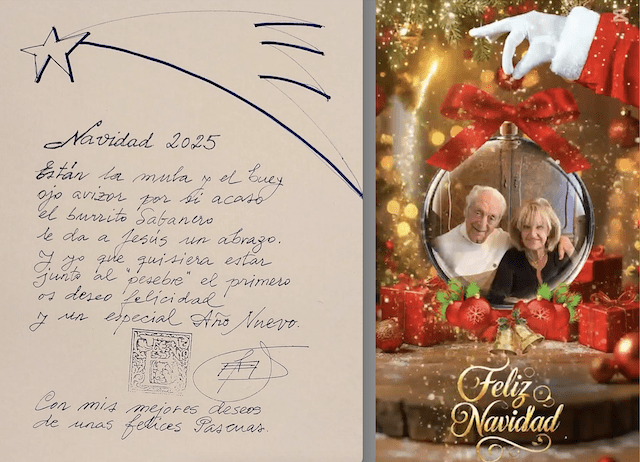 Navidad 2025
Están la mula y el buey
ojo avizor por si acaso
el burrito Sabanero
le da a Jesús un abrazo.
Y yo que quisiera estar
junto al "pesebre" el primero
os deseo felicidad
y un especial Año Nuevo.
Con mis mejores deseos
de unas felices Pascuas.
Feliz
Navidad